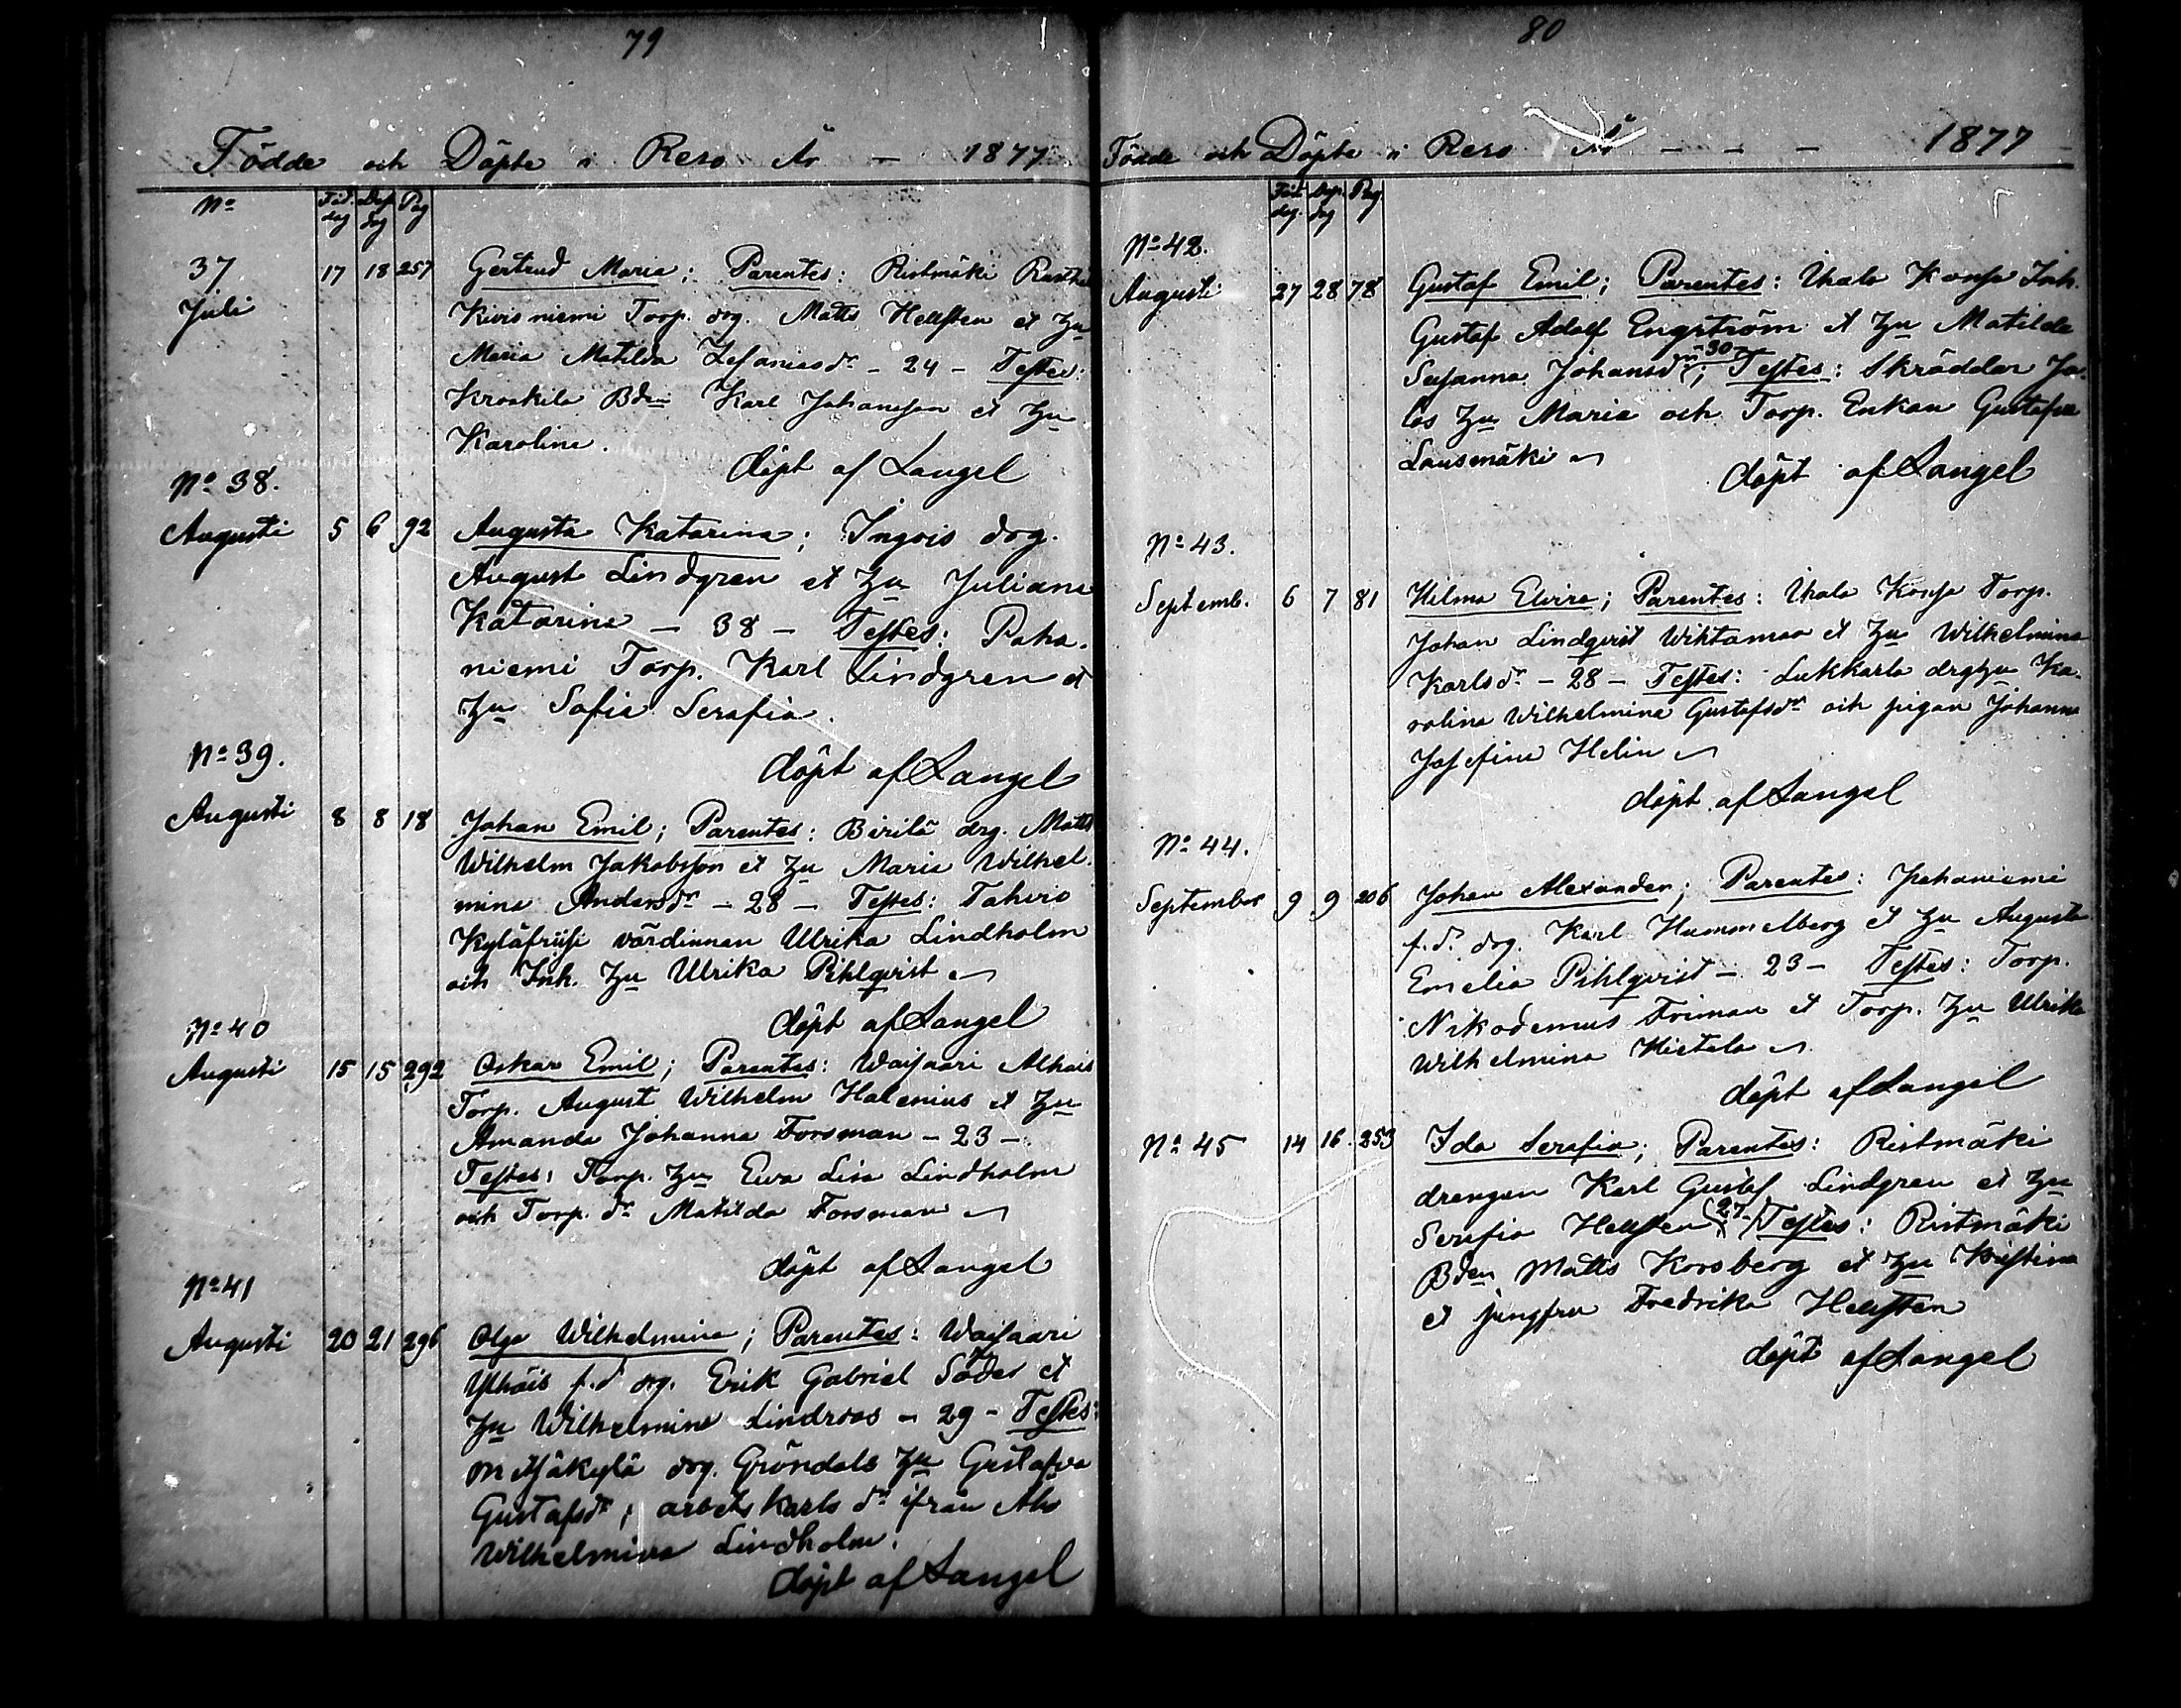 79
Födde och Döpte i Reso År - 1877
No Föd. dag Döp. dag Pag
37 Juli 17 18 257 Gertrud Maria; Parentes: Ristmäki
Kivisniemi Torp. drg. Matts Hellsten et Hu
Maria Matilda Zefaniasdr - 24 - Testes:
Kroskila Bden Karl Johansson et Hu
Karolina.
döpt af Langel
No 38.
Augusti 5 6 92 Augusta Katarina; Ingois drg.
August Lindgren et Hu Juliana
Katarina - 38 - Testes: Paha-
niemi Torp. Karl Lindgren et
Hu Sofia Serafia.
döpt af Langel
No 39.
Augusti 8 8 18 Johan Emil; Parentes: Birilä drg. Matts
Wilhelm Jakobsson et Hu Maria Wilhel-
mina Andersdr - 28 - Testes: Tahvio
värdinnan Ulrika Lindholm
och Inh. Hu Ulrika Pihlqvist
döpt af Langel
No 40
Augusti 15 15 292 Oskar Emil; Parentes: Waisaari Alhais
Torp. August Wilhelm Halenius et Hu
Amanda Johanna Forsman - 23 -
Testes: Torp. Hu Ewa Lisa Lindholm
och Torp. dr Matilda Forsman
döpt af Langel
No 41
Augusti 20 21 296 Olga Wilhelmina; Parentes: Waisaari
Ylhäis f.d drg. Erik Gabriel Söder et
Hu Wilhelmina Lindroos - 29 - Testes:
Metsäkylä drg. Gröndals Hu Gustafva
Gustafsdr; arbets Karls dr ifrån Åbo
Wilhelmina Lindholm.
döpt af Langel
80
Födde och Döpte i Reso År - - - 1877
Föd. dag. Döp. dag Pag
No 42.
Augusti 27 28 78 Gustaf Emil; Parentes: Ihala Konsa Inh.
Gustaf Adolf Engström et Hu Matilda
Susanna Johansdr - 30 -; Testes: Skräddar Ja-
los Hu Maria och Torp. Enkan Gustafva
Lausmäki
döpt af Langel
No 43.
Septemb. 6 7 81 Hilma Elvira; Parentes: Ihala Konsa Torp.
Johan Lindqvist Wiktamaa et Hu Wilhelmina
Karlsdr - 28 - Testes: Lukkarla drghu Ka-
rolina Wilhelmina Gustafsdr och pigan Johanna
Josefina Helin
döpt af Langel
No 44.
September 9 9 206 Johan Alexander; Parentes: Pahaniemi
f.d. drg. Karl Hummelberg et Hu Augusta
Emelia Pihlqvist - 23 - Testes: Torp.
Nikodemus Friman et Torp. Hu Ulrika
Wilhelmina Hietala
döpt af Langel
No 45 14 16 253 Ida Serafia; Parentes: Ristmäki
drengen Karl Gustaf Lindgren et Hu
Serafia Hellsten (27) Testes: Ristmäki
Bden Matts Korsberg et Hu Kristina
et jungfru Fredrika Hellsten
döpt af Langel